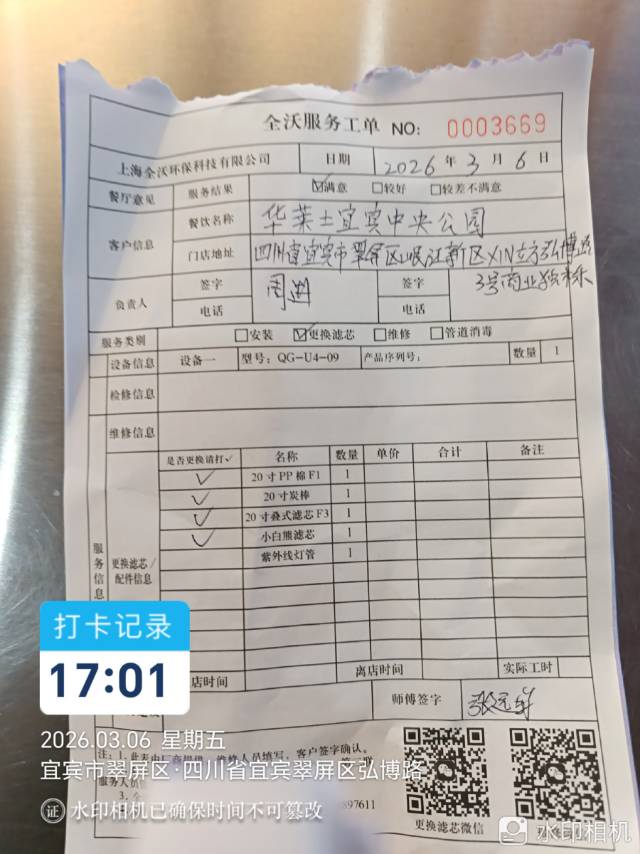 全沃服务工单 NO: 0003669
上海全沃环保科技有限公司 日期 2026年3月6日
餐厅意见 服务结果 ☑满意 □较好 □较差不满意
客户信息 餐饮名称 华莱士宜宾中央公园
门店地址 四川省宜宾市翠屏区岷江新区XIN立方弘博路
3号商业独栋
负责人 签字 签字
电话 电话
服务类别 □安装 ☑更换滤芯 □维修 □管道消毒
设备信息 设备一 型号: QG-U4-09 产品序列号: 数量 1
检修信息
维修信息
服务信息
更换滤芯/配件信息
是否更换请打✓ 名称 数量 单价 合计 备注
✓ 20寸PP棉F1 1
✓ 20寸炭棒 1
✓ 20寸叠式滤芯F3 1
✓ 小白熊滤芯 1
紫外线灯管 1
店时间 离店时间 实际工时
师傅签字
注: 1.此表由 人员填写，客户签字确认。
897611
更换滤芯微信
打卡记录
17:01
2026.03.06 星期五
宜宾市翠屏区·四川省宜宾翠屏区弘博路
证 水印相机已确保时间不可篡改
水印相机